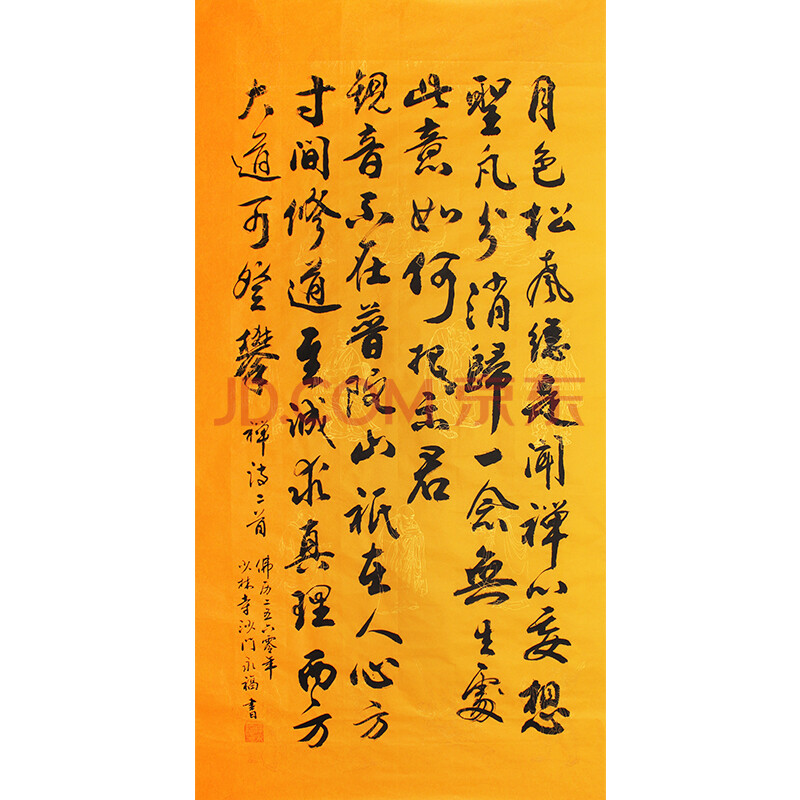 月色松風總是聞禪心妄想
聖凡分消歸一念無生處
此意如何把示君
觀音不在普陀山祇在人心方
寸間修道至誠求真理西方
大道可登攀 禅诗二首
佛历二五六零年
少林寺沙门永福書
JD.COM 京东